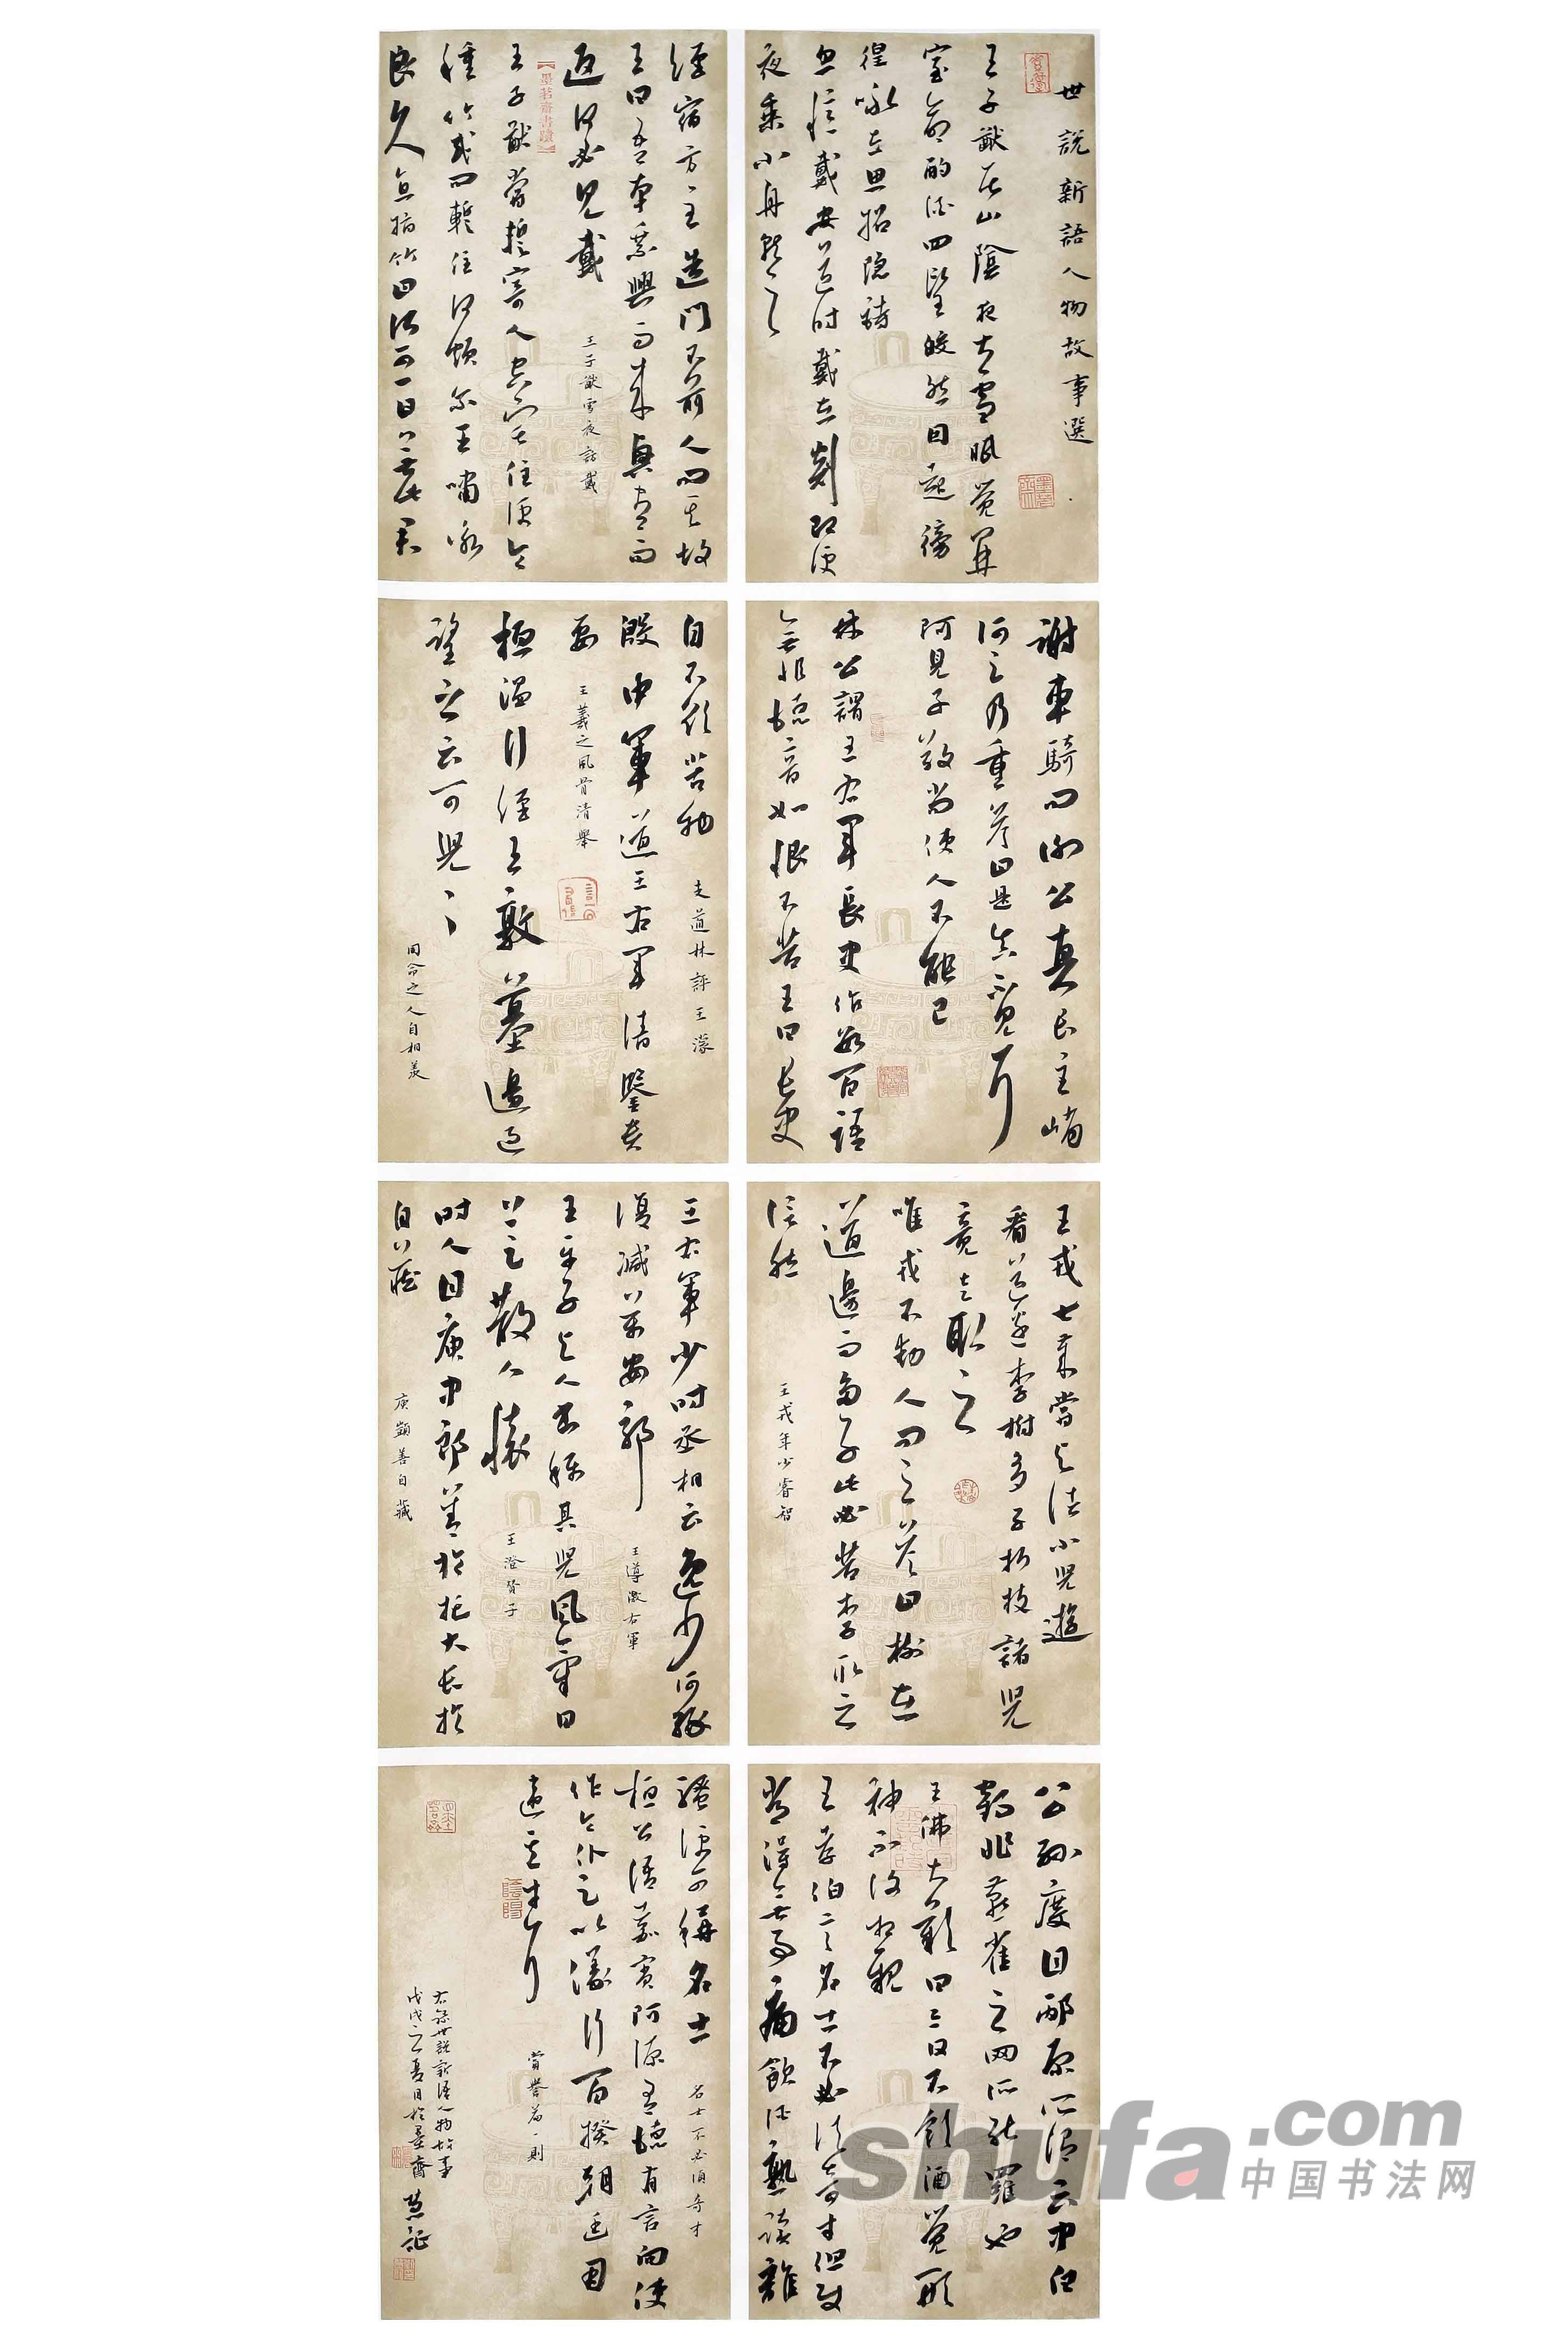 世說新語人物故事選
王子猷居山陰夜大雪眠覺開
室命酌酒四望皎然因起彷
徨咏左思招隱詩
忽憶戴安道時戴在剡即便
夜乘小舟就之
經宿方至造門不前人問其故
王曰吾本乘興而來興盡而
返何必見戴
王子猷雪夜訪戴
墨茗齋書蹟
王子猷嘗暫寄人空宅住便令
種竹或問暫住何煩爾王嘯詠
良久直指竹曰何可一日無此君
謝車騎問謝公真長至峭
何足乃重答曰是不見耳
阿見子敬尚使人不能已
林公謂王右軍長史作數百語
無非德音如恨不苦王曰長史
自不欲苦物
支道林評王濛
殷中軍道王右軍清鑒貴
要
王羲之風骨清舉
桓溫行經王敦墓邊過
望之云可兒〻
同命之人自相羨
王戎七歲嘗與諸小兒遊
看道邊李樹多子折枝諸兒
競走取之
唯戎不動人問之答曰樹在
道邊而多子此必苦李取之
信然
王戎年少睿智
王右軍少時丞相云逸少何緣
復減萬安邪
王導激右軍
王平子與人書稱其兒風氣日
上足散人懷
王澄賞子
時人目庾中郎善於托大長於
自藏
庾顗善自藏
公孫度目邴原所謂雲中白
鶴非燕雀之網所能羅也
王佛大歎曰三日不飲酒覺形
神不復相親
王孝伯言名士不必須奇才但使
常得無事痛飲酒熟讀離
騷便可稱名士
名士不必須奇才
桓公語嘉賓阿源有德有言向使
作令僕足以儀行百揆朝廷用
違其才耳
賞譽篇一則
右錄世說新語人物故事
戊戌之夏月於墨齋
shufa.com
中国书法网